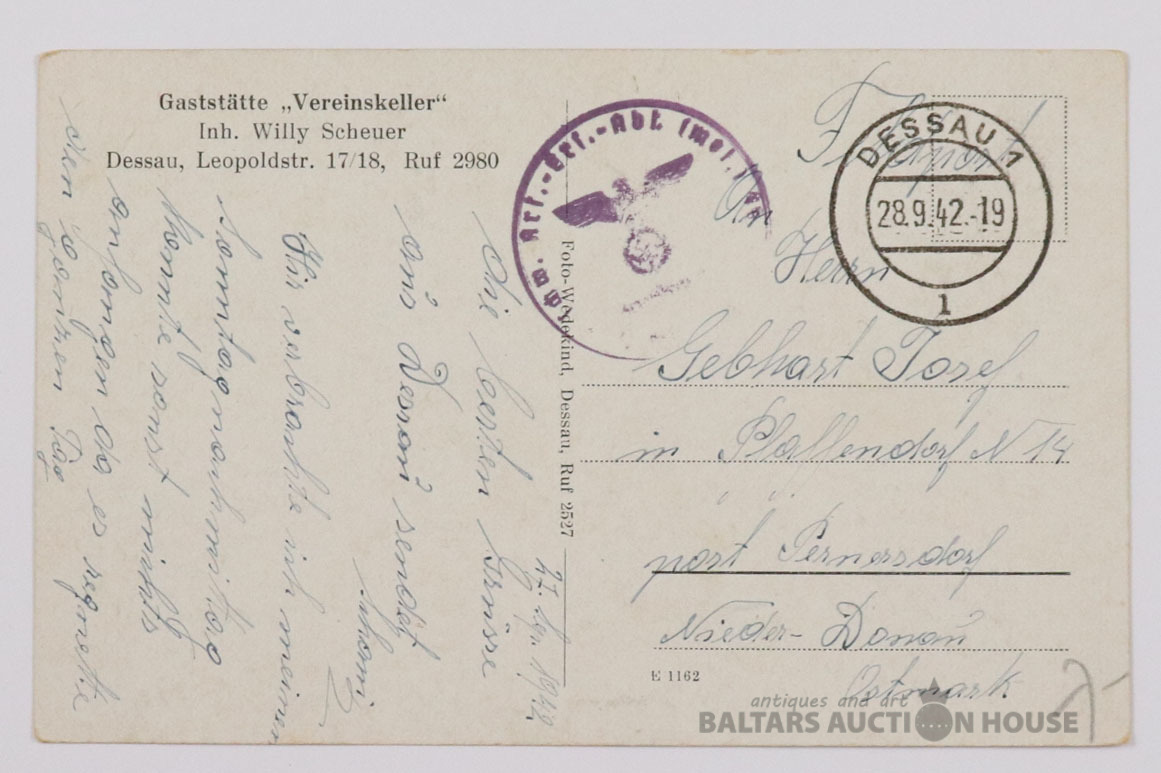 Gaststätte „Vereinskeller“
Inh. Willy Scheuer
Dessau, Leopoldstr. 17/18, Ruf 2980
27. Sep. 1942
die besten Grüsse
aus Dessau sendet
Hier verbrachte ich meinen
Sonntagnachmittag
konnte sonst nichts
anfangen da es regnete
den ganzen Tag
Foto-Wedekind, Dessau, Ruf 2527
Art.-Ers.-Abt. (mot.)
Feldpost
DESSAU 1
28.9.42.-19
1
An
Herrn
Gebhart Josef
in Pfaffendorf N 14
post Pernersdorf
Nieder-Donau
Ostmark
E 1162
antiques and art
BALTARS AUCTION HOUSE